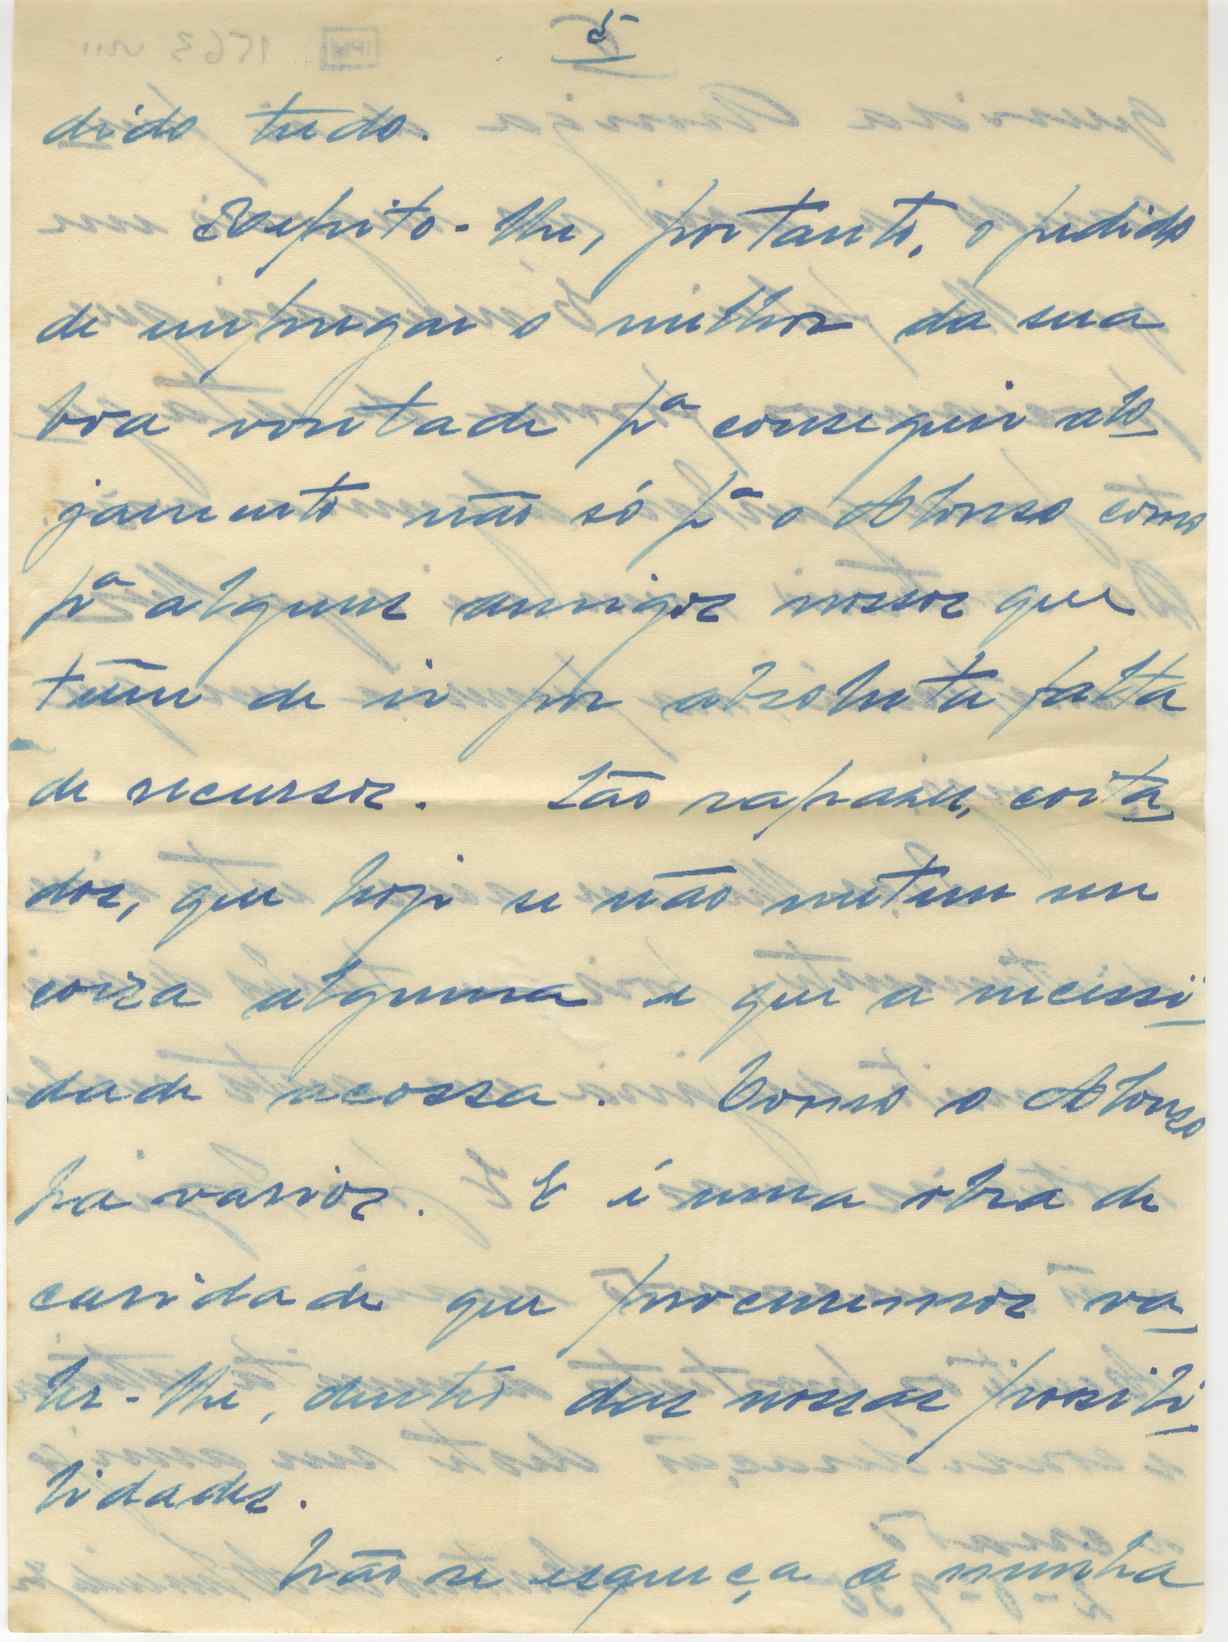 5
dido tudo.
Repito-lhe, portanto, o pedido
de empregar o melhor da sua
boa vontade pª conseguir alo
jamento não só pª o Afonso como
pª alguns amigos nossos que
têem de ir por absoluta falta
de recursos. São rapazes, coita
dos, que hoje se não metem em
coisa alguma e que a necessi
dade acossa. Como o Afonso
ha varios. E é uma obra de
caridade que procuremos va
ler-lhe, dentro das nossas possibi
lidades.
Não se esqueça a minha